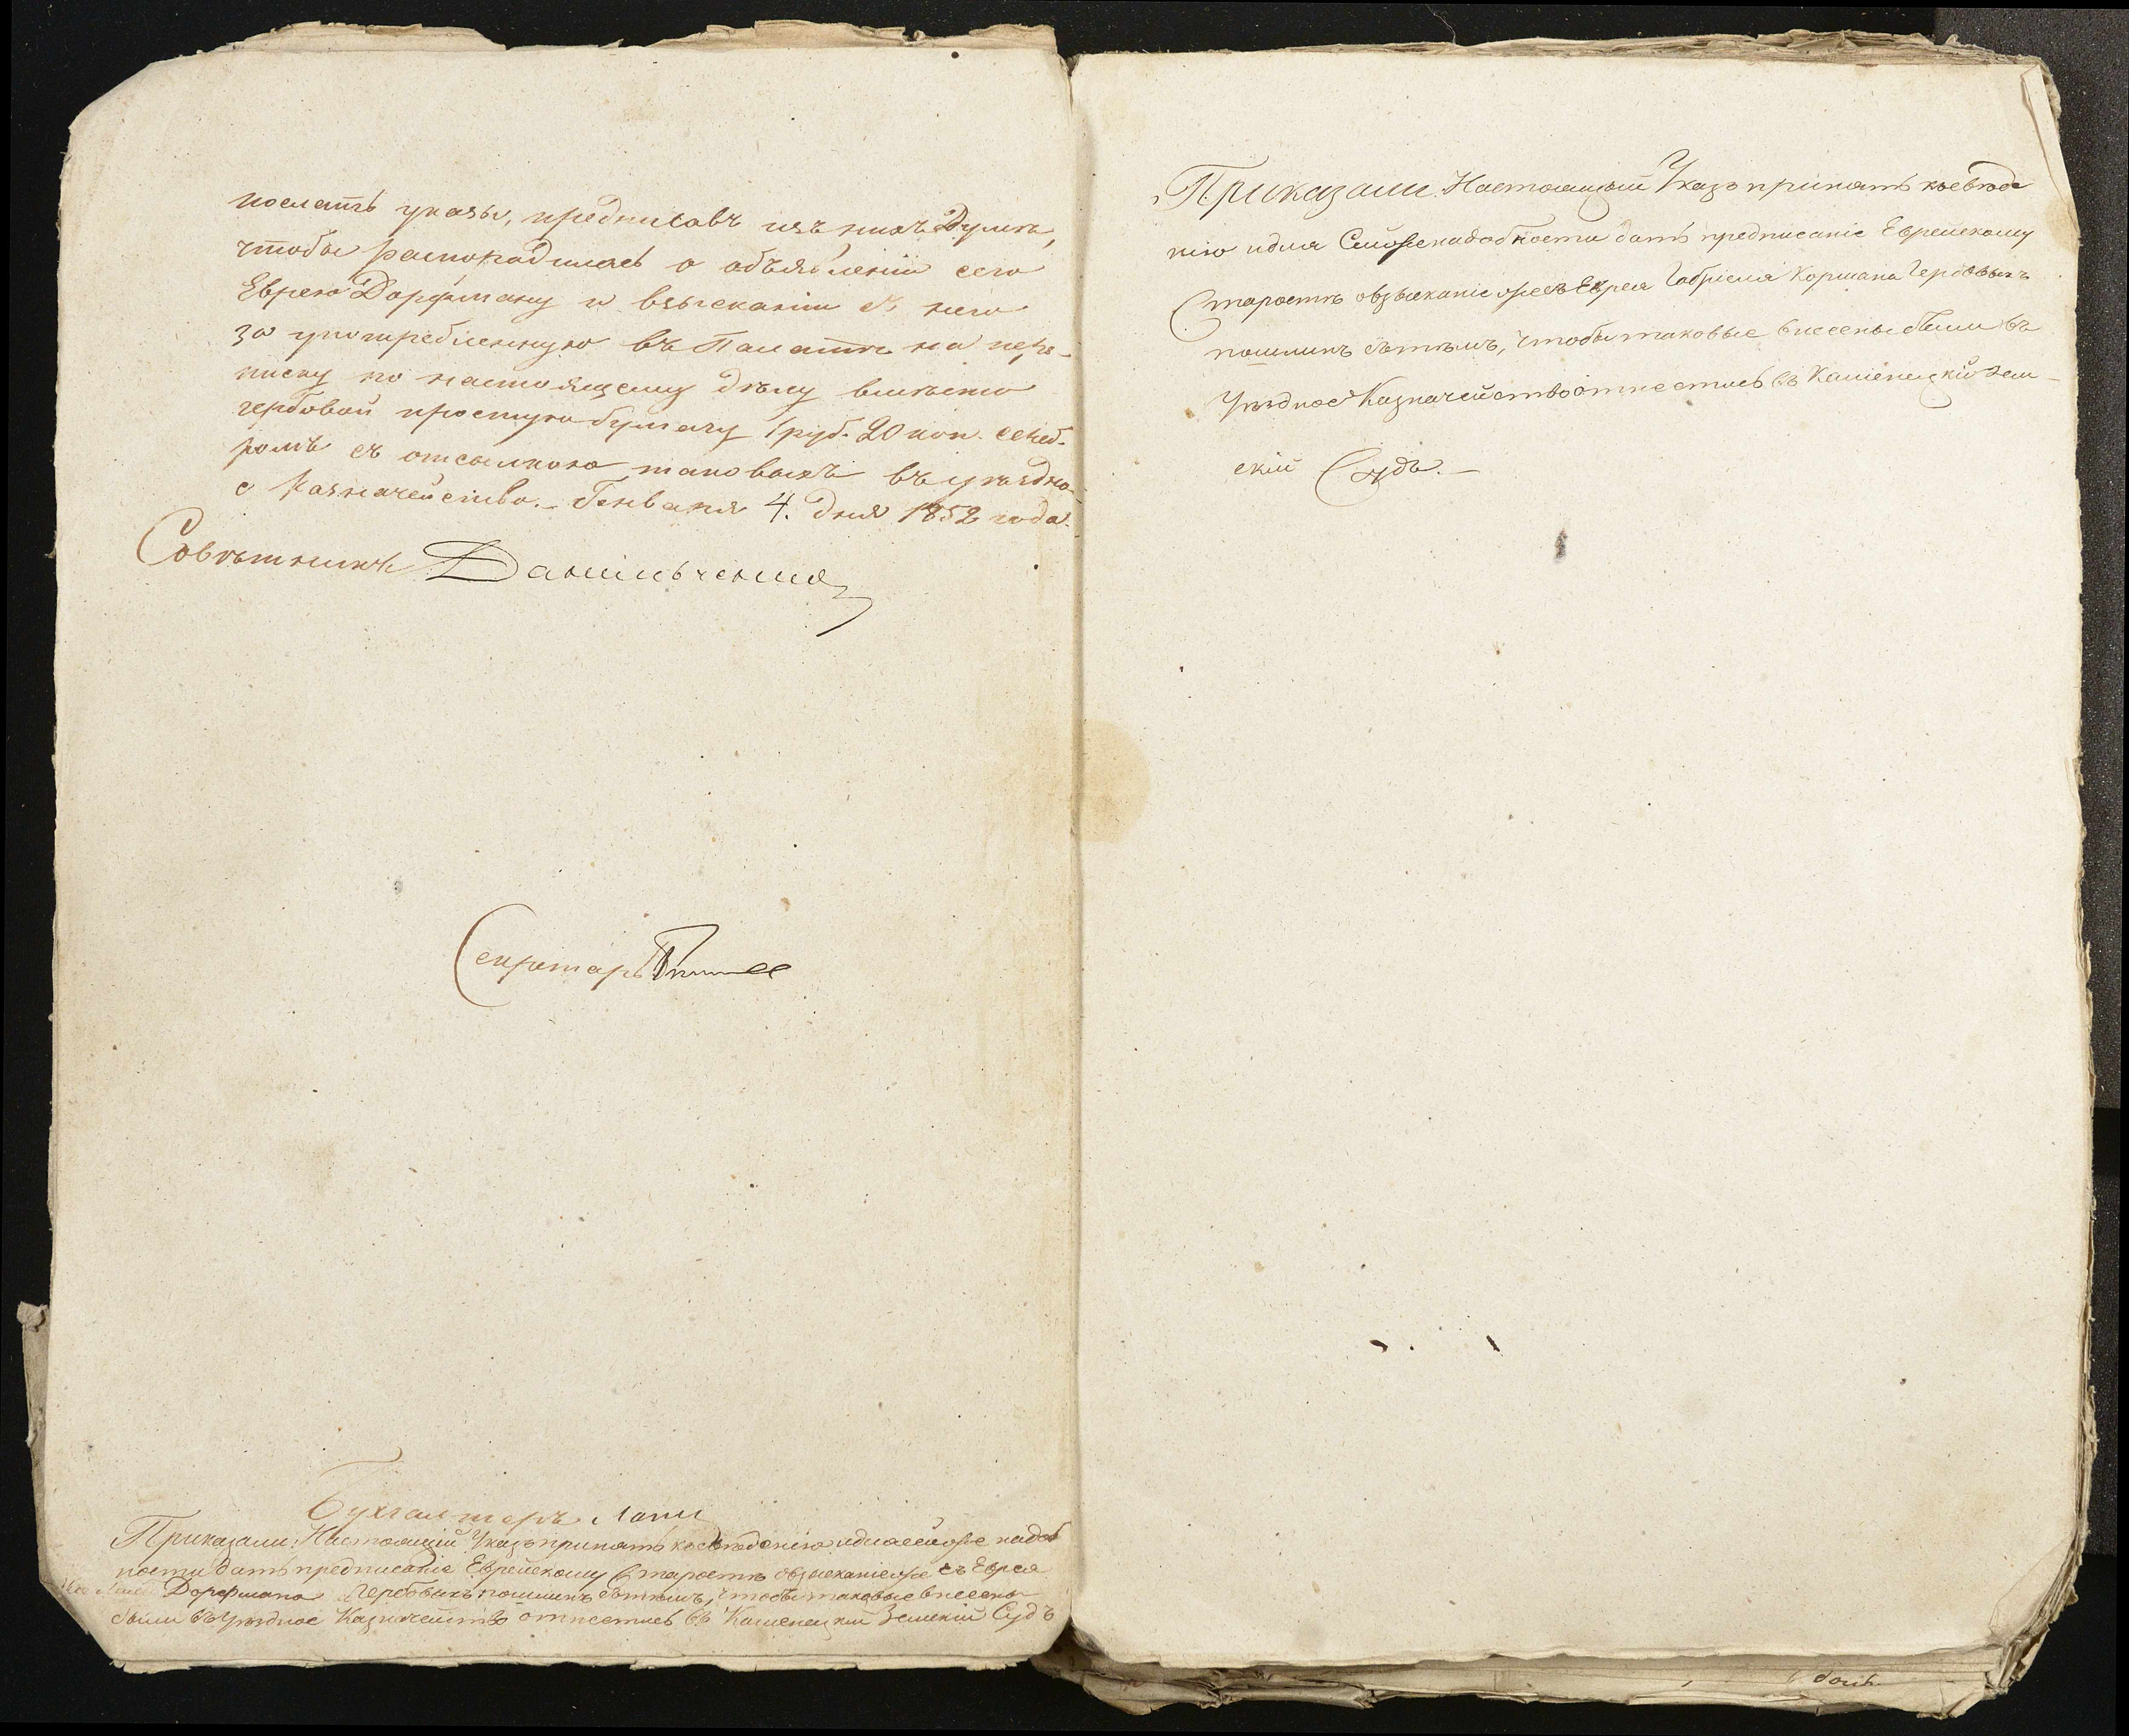 послать указы, предписавъ изъ нихъ Думѣ,
чтобы распорядилась о объявленіи сего
Еврею Дорфману и взысканіи съ него
за употребленную въ Палатѣ на пере-
писку по настоящему дѣлу вмѣсто
гербовой простую бумагу 1 руб. 20 коп. сереб-
ромъ съ отсылкою таковыхъ въ уѣздно-
е Казначейство. – Генваря 4. дня 1852 года.
Совѣтникъ Данильченко
Секретарь
Бухгалтеръ
Приказали: Настоящій Указъ принять къ свѣденію и для сейже надоб
ности дать предписаніе Еврейскому Старостѣ о взысканіи же съ Еврея
Дорфмана Гербовыхъ пошлинъ сътѣмъ, чтобы таковые внесены
были въ Уѣздное Казначейство отнестись въ Каменецкій Земскій Судъ
Приказали Настоящій Указъ принять ксвѣде
нію и для Сейже надобности дать предписаніе Еврейскому
Старостѣ о взысканіе же съ Еврея Габріеля Кормана Гербовыхъ
пошлинъ сътѣмъ, чтобы таковые внесены были въ
Уѣздное Казначейство отнестись въ Каменецкій Зем-
скій Судъ. –